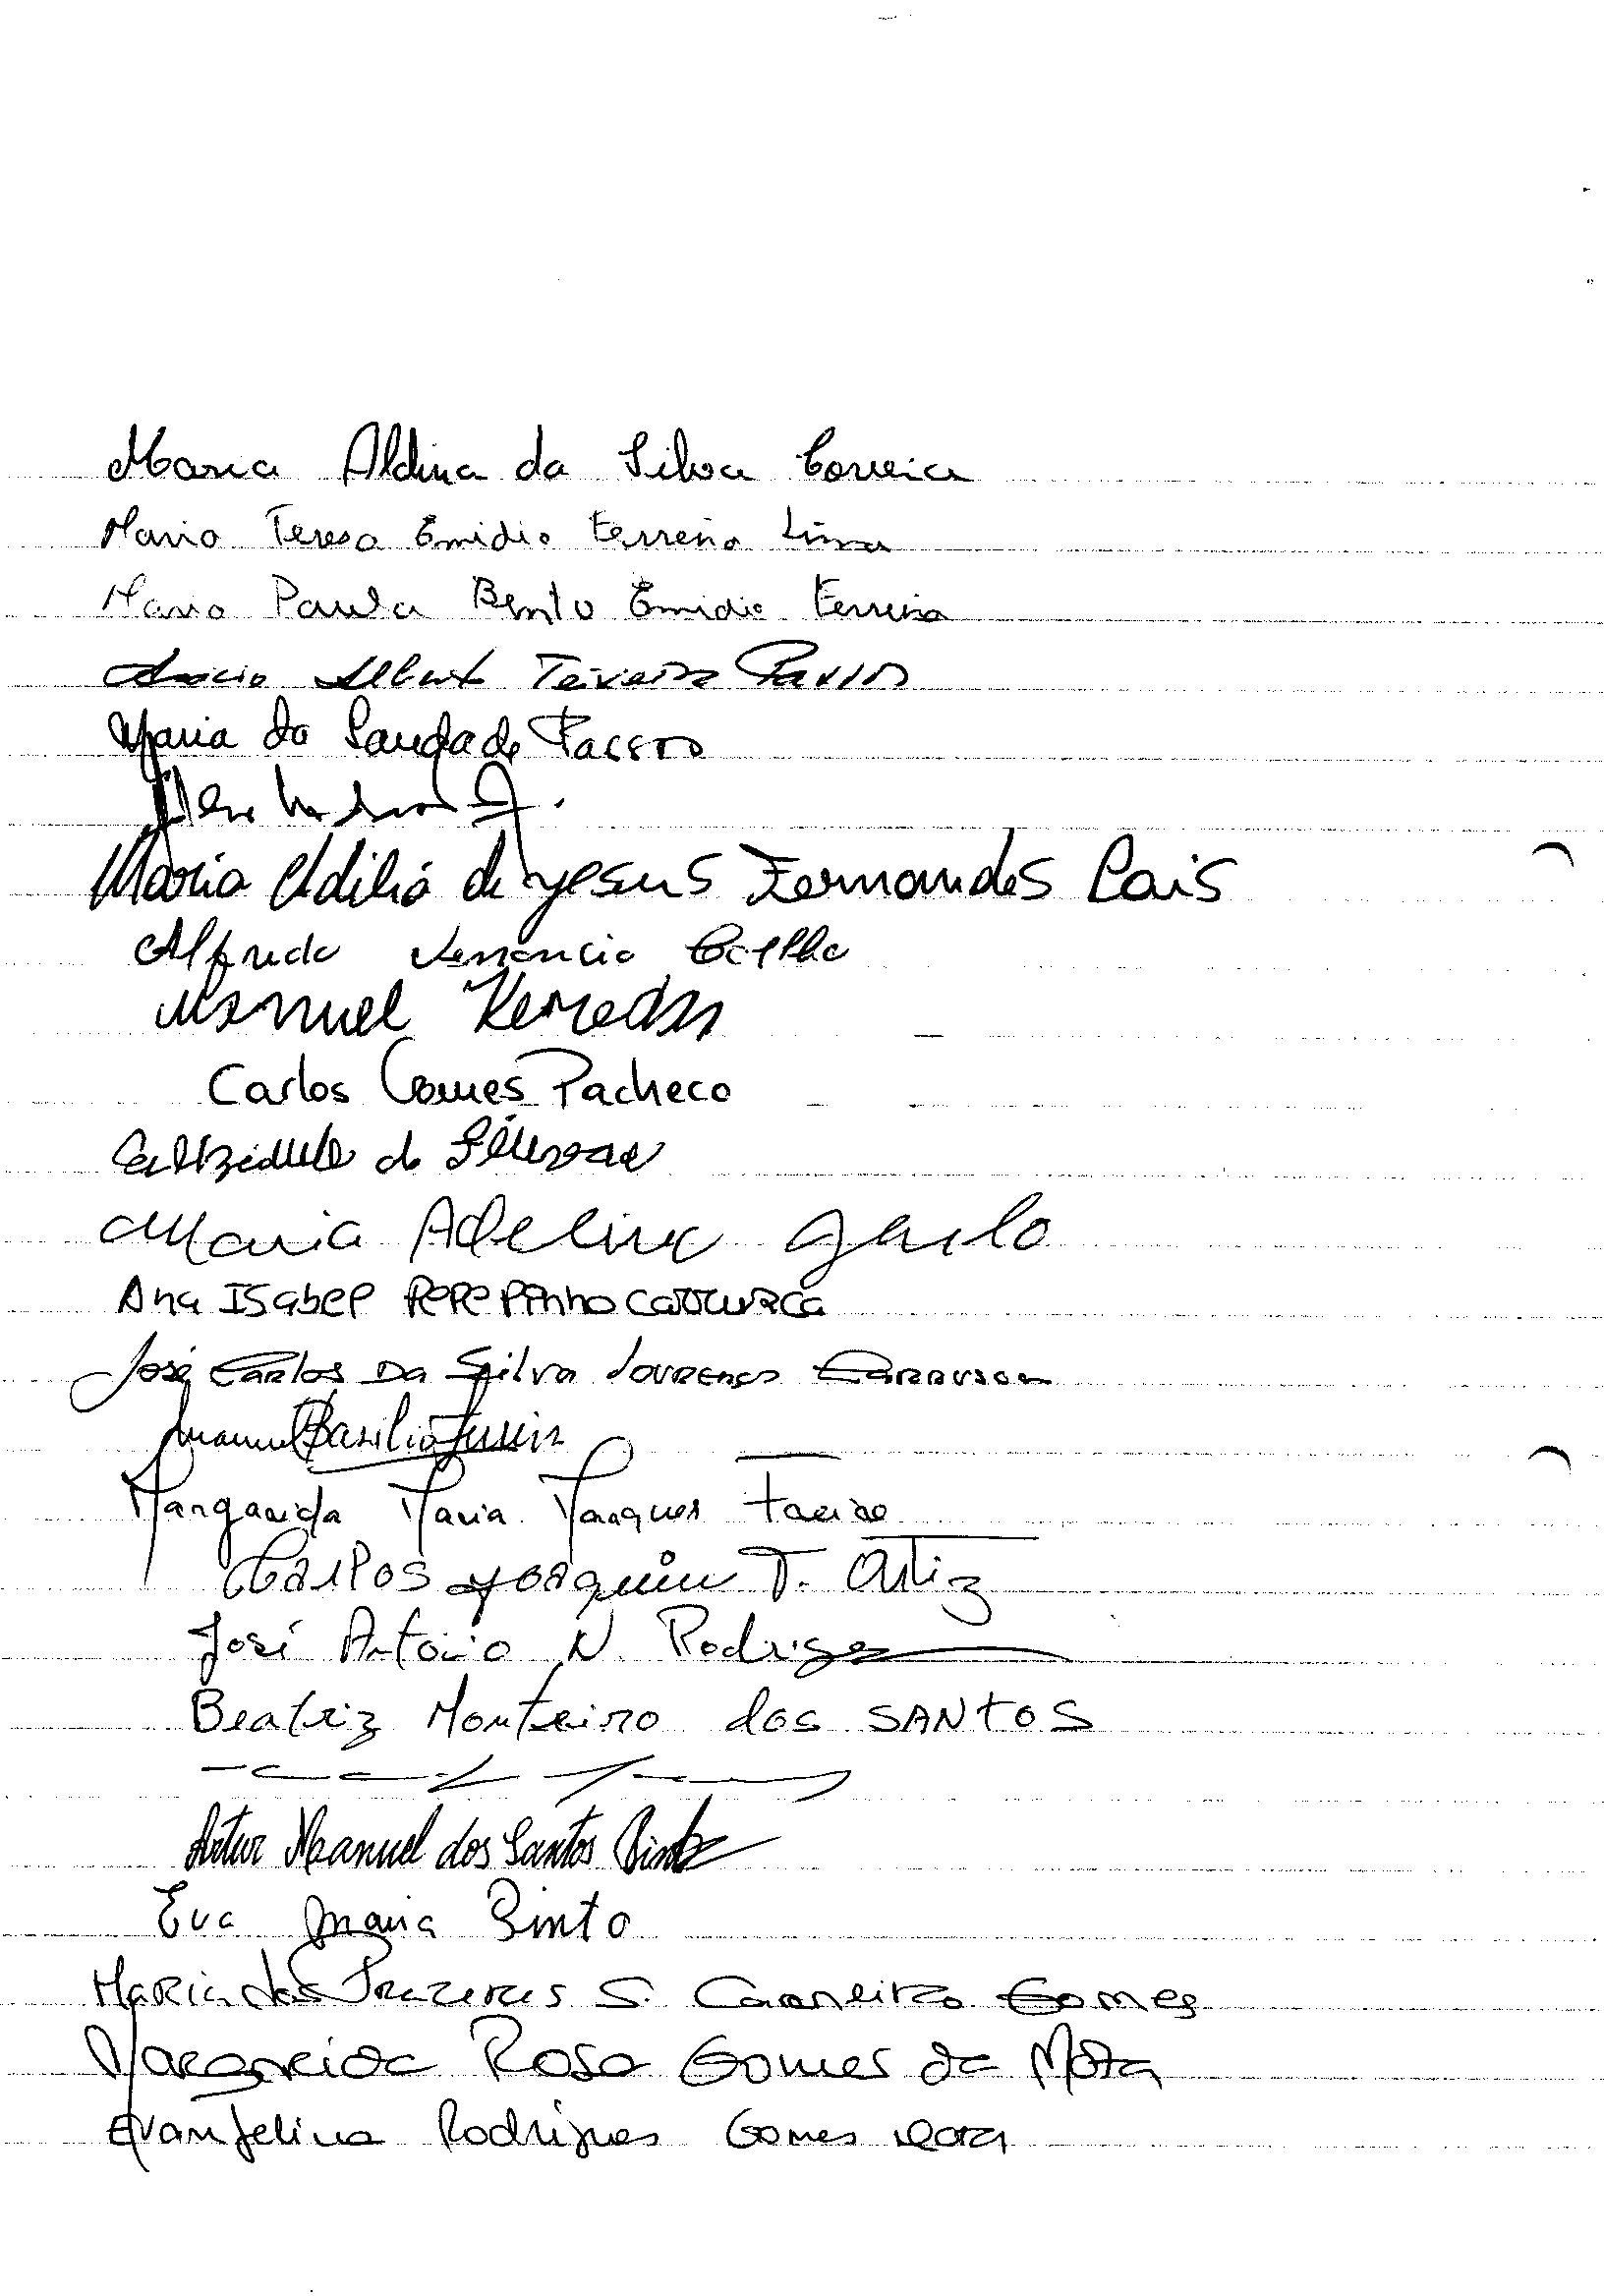 Maria Aldina da Silva Correia
Maria Teresa Emidio Ferreira Lima
Maria Paula Bento Emidio Ferreira
Teixeira
Maria da Saudade Passos
Maria Adilia de Jesus Fernandes Pais
Alfredo Venancio Coelho
Manuel
Carlos Gomes Pacheco
de
Maria Adelina
Ana Isabel Pinho Carrusca
José Carlos Da Silva Lourenço Carrusca
Manuel Basilio
Margarida Maria Marques
Carlos Joaquim T. Ortiz
José António N. Rodrigues
Beatriz Monteiro dos SANTOS
Artur Manuel dos Santos Pinto
Eva Maria Pinto
Maria dos Prazeres S. Carneiro Gomes
Margarida Rosa Gomes da Mota
Evangelina Rodrigues Gomes